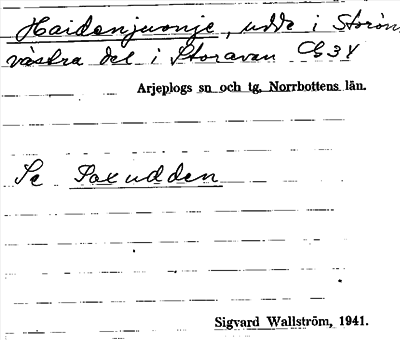 Haidenjuonje, udde i Storöns
västra del i Storavan G34
Arjeplogs sn och tg, Norrbottens län.
Se Saxudden
Sigvard Wallström, 1941.